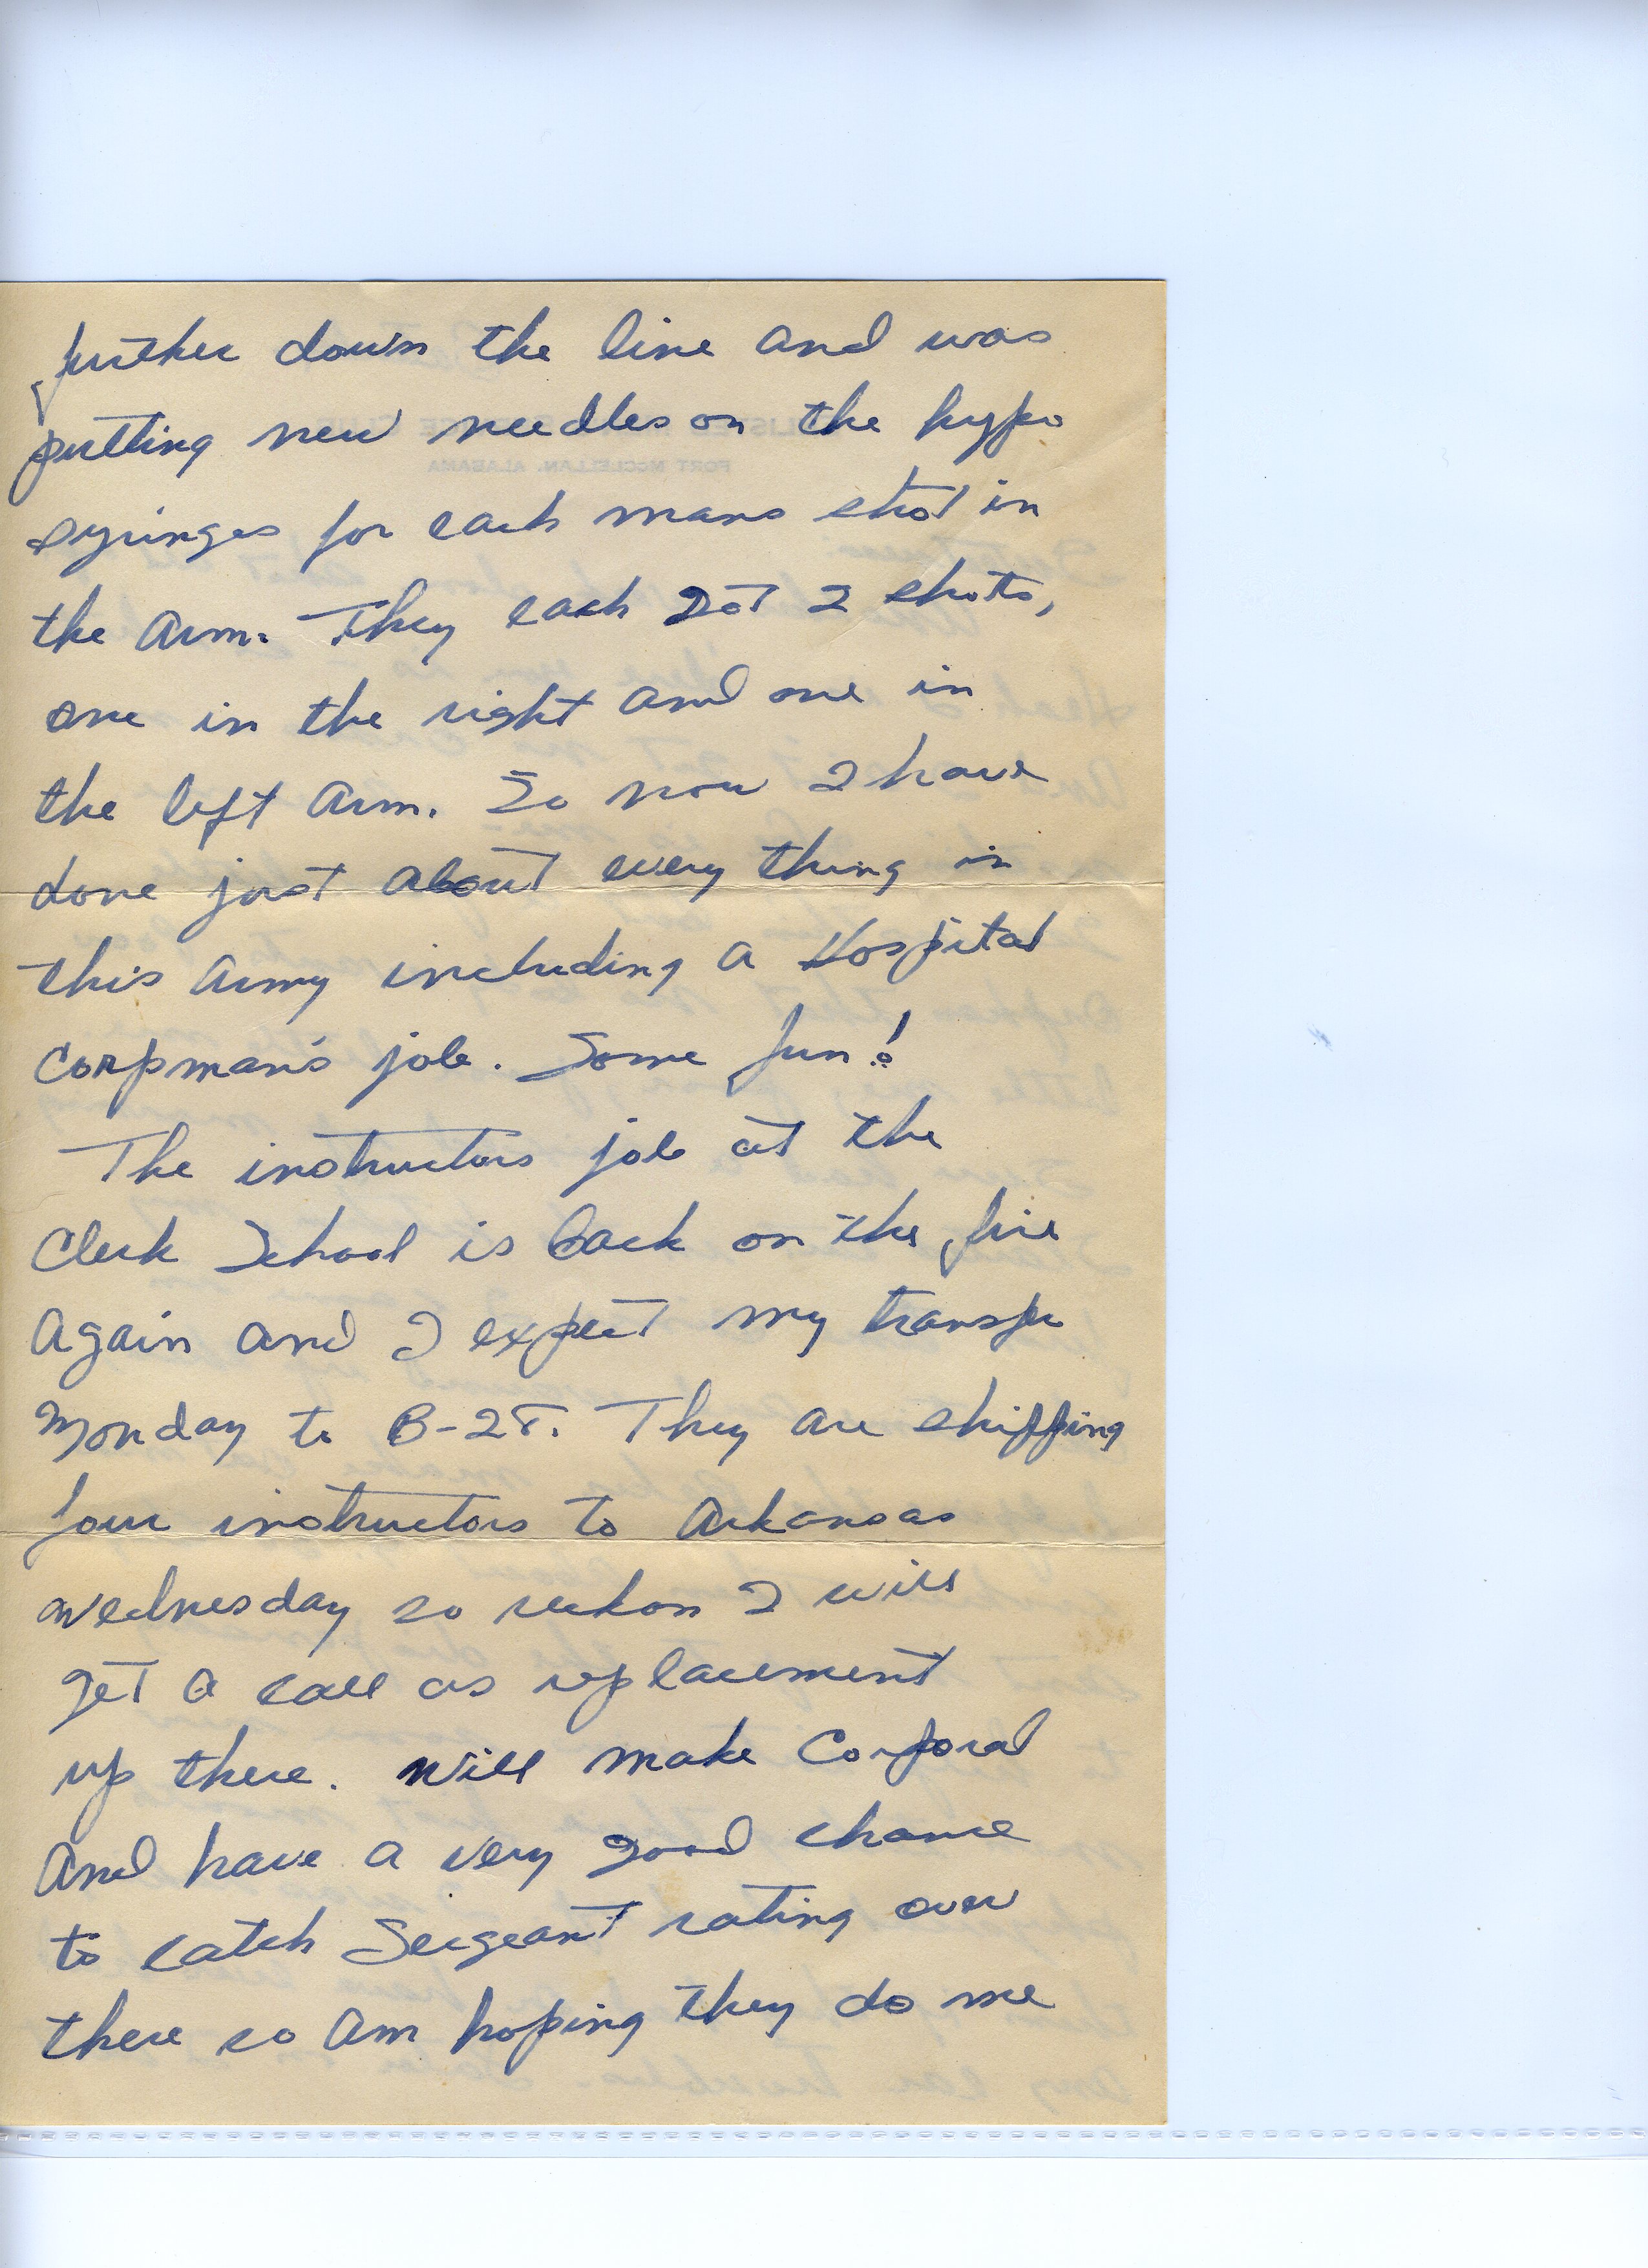 further down the line and was
putting new needles on the hypo
syringes for each mans shot in
the arm. They each got 2 shots,
one in the right and one in
the left arm. So now I have
done just about every thing in
this Army including a Hospital
Corpman's job. Some fun!
The instructors job at the
Clerk School is back on the fire
again and I expect my transfer
Monday to B-28. They are shipping
four instructors to Arkansas
Wednesday so reckon I will
get a call as replacement
up there. Will make Corporal
and have a very good chance
to catch Sergeant rating over
there so am hoping they do me
FORT McCLELLAN, ALABAMA